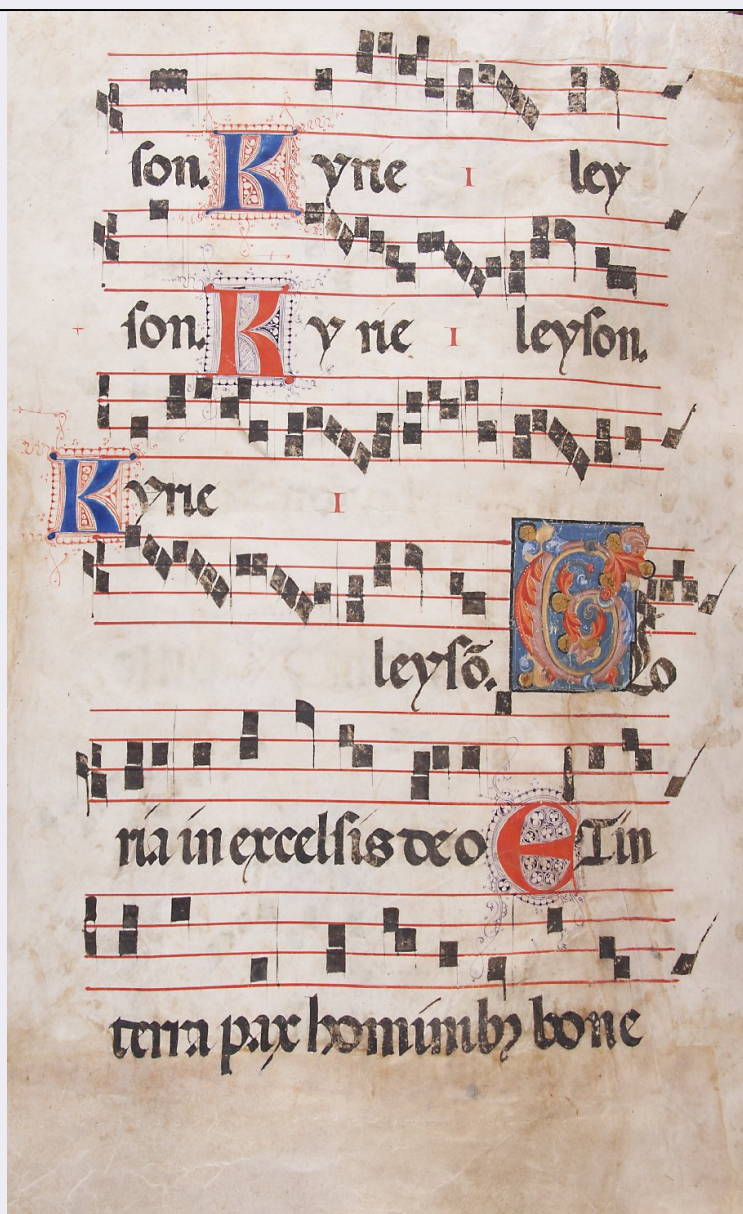 son. Kyrie I ley
son. Kyrie I leyson.
Kyrie I
leysõ. Glo
ria in excelsis deo Et in
terra pax hominibꝫ bone